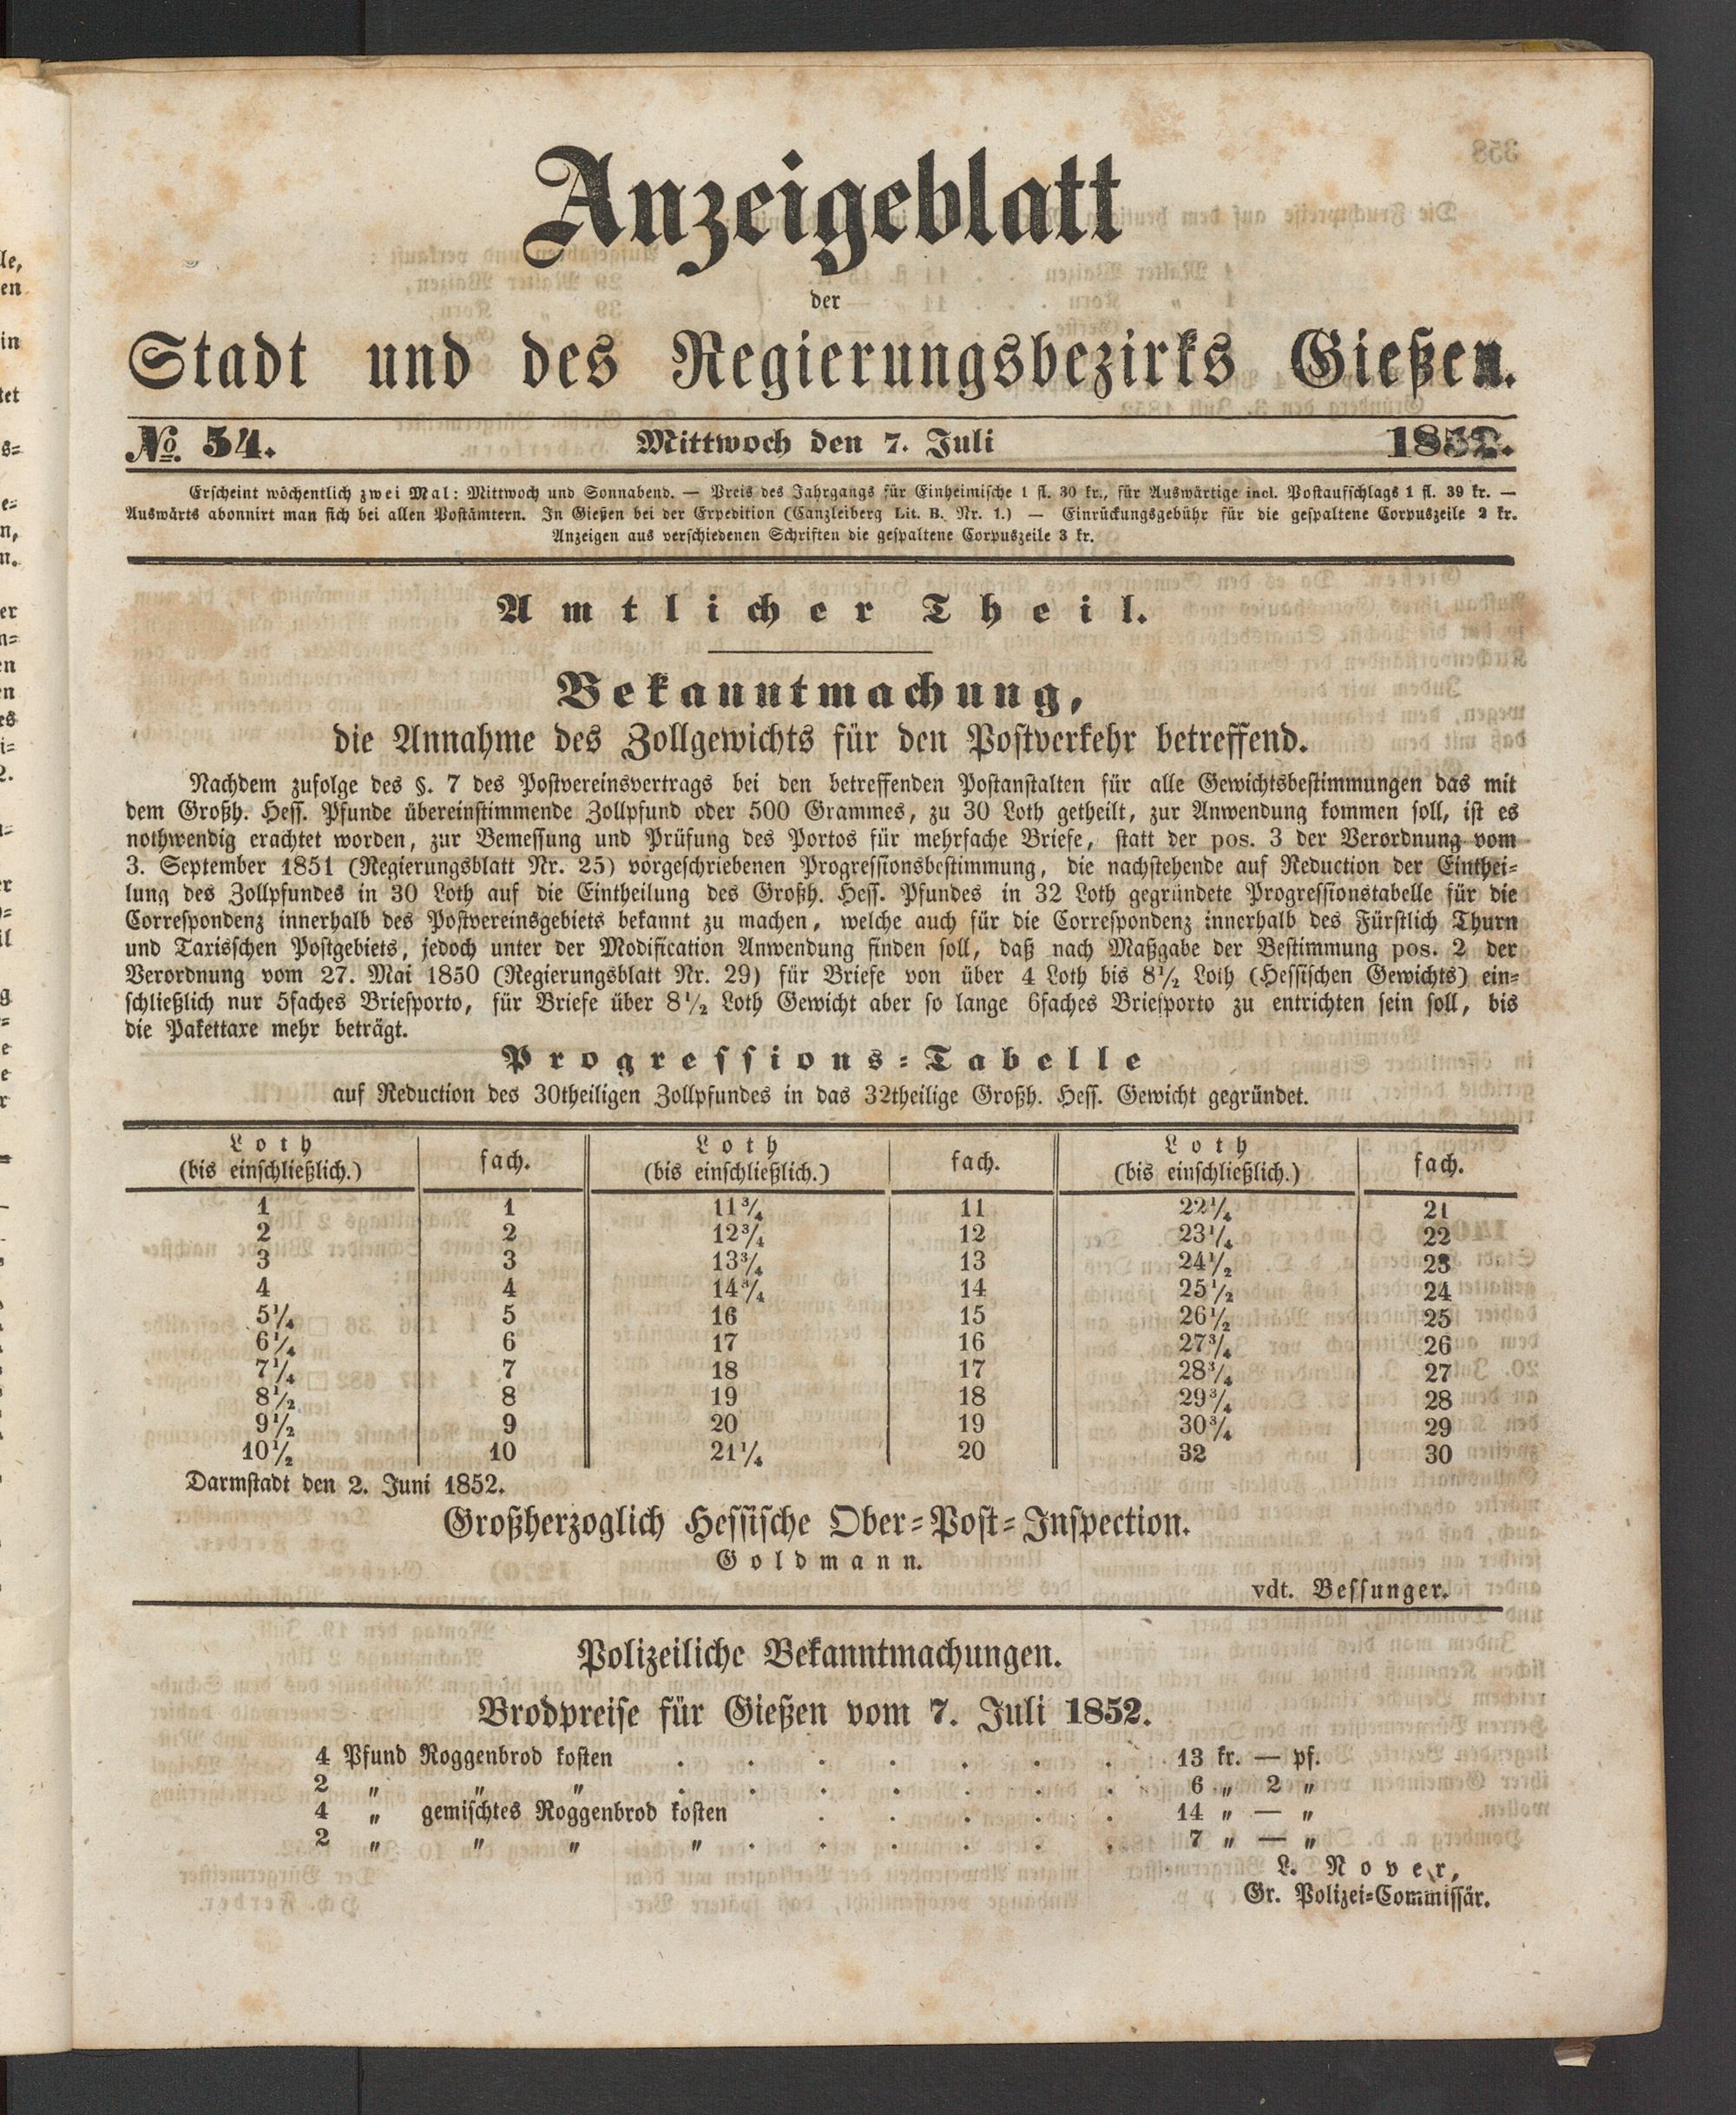 Anzeigeblatt
der
Stadt und des Regierungsbezirks Gießen.
No. 54. Mittwoch den 7. Juli 1852.
Erscheint wöchentlich zwei Mal: Mittwoch und Sonnabend. — Preis des Jahrgangs für Einheimische 1 fl. 30 kr., für Auswärtige incl. Postaufschlags 1 fl. 39 kr. —
Auswärts abonnirt man sich bei allen Postämtern. In Gießen bei der Expedition (Canzleiberg Lit. B. Nr. 1.) — Einrückungsgebühr für die gespaltene Corpuszeile 2 kr.
Anzeigen aus verschiedenen Schriften die gespaltene Corpuszeile 3 kr.
Amtlicher Theil.
Bekanntmachung,
die Annahme des Zollgewichts für den Postverkehr betreffend.
Nachdem zufolge des §. 7 des Postvereinsvertrags bei den betreffenden Postanstalten für alle Gewichtsbestimmungen das mit
dem Großh. Hess. Pfunde übereinstimmende Zollpfund oder 500 Grammes, zu 30 Loth getheilt, zur Anwendung kommen soll, ist es
nothwendig erachtet worden, zur Bemessung und Prüfung des Portos für mehrfache Briefe, statt der pos. 3 der Verordnung vom
3. September 1851 (Regierungsblatt Nr. 25) vorgeschriebenen Progressionsbestimmung, die nachstehende auf Reduction der Einthei-
lung des Zollpfundes in 30 Loth auf die Eintheilung des Großh. Hess. Pfundes in 32 Loth gegründete Progressionstabelle für die
Correspondenz innerhalb des Postvereinsgebiets bekannt zu machen, welche auch für die Correspondenz innerhalb des Fürstlich Thurn
und Taxisschen Postgebiets, jedoch unter der Modification Anwendung finden soll, daß nach Maßgabe der Bestimmung pos. 2 der
Verordnung vom 27. Mai 1850 (Regierungsblatt Nr. 29) für Briefe von über 4 Loth bis 8½ Loth (Hessischen Gewichts) ein-
schließlich nur 5faches Briefporto, für Briefe über 8½ Loth Gewicht aber so lange 6faches Briefporto zu entrichten sein soll, bis
die Pakettaxe mehr beträgt.
Progressions-Tabelle
auf Reduction des 30theiligen Zollpfundes in das 32theilige Großh. Hess. Gewicht gegründet.
Loth (bis einschließlich.) fach. Loth (bis einschließlich.) fach. Loth (bis einschließlich.) fach.
1 1 11¾ 11 22¼ 21
2 2 12¾ 12 23¼ 22
3 3 13¾ 13 24½ 23
4 4 14¾ 14 25½ 24
5¼ 5 16 15 26½ 25
6¼ 6 17 16 27¾ 26
7¼ 7 18 17 28¾ 27
8½ 8 19 18 29¾ 28
9½ 9 20 19 30¾ 29
10½ 10 21¼ 20 32 30
Darmstadt den 2. Juni 1852.
Großherzoglich Hessische Ober-Post-Inspection.
Goldmann.
vdt. Bessunger.
Polizeiliche Bekanntmachungen.
Brodpreise für Gießen vom 7. Juli 1852.
4 Pfund Roggenbrod kosten . . . . . . . 13 kr. — pf.
2 „ „ „ . . . . . . . 6 „ 2 „
4 „ gemischtes Roggenbrod kosten . . . . . 14 „ — „
2 „ „ „ „ . . . . . . 7 „ — „
L. Nover,
Gr. Polizei-Commissär.